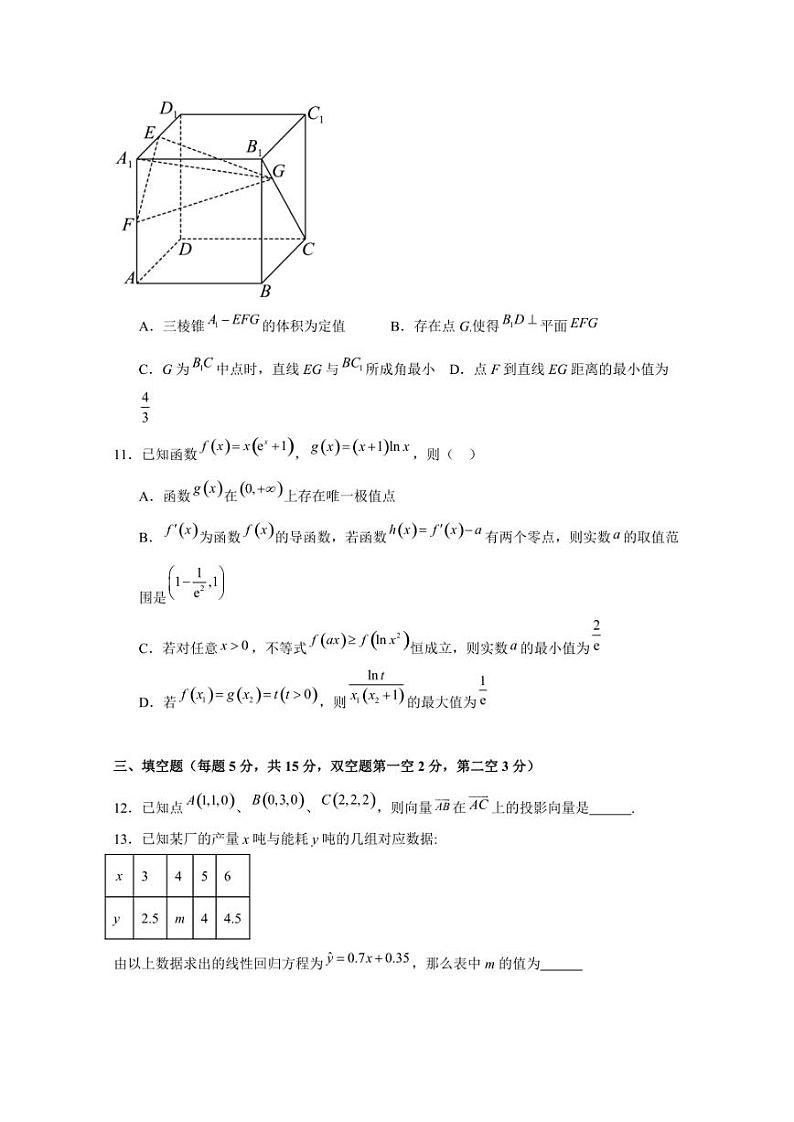 D₁
C₁
E
A₁
B₁
G
F
D
C
A
B
A．三棱锥 A₁－EFG 的体积为定值 B．存在点 G,使得 B₁D⊥ 平面 EFG
C．G 为 B₁C 中点时，直线 EG 与 BC₁ 所成角最小 D．点 F 到直线 EG 距离的最小值为
4/3
11．已知函数 f(x)=x(eˣ+1)，g(x)=(x+1)ln x，则（ ）
A．函数 g(x) 在 (0,+∞) 上存在唯一极值点
B．f′(x) 为函数 f(x) 的导函数，若函数 h(x)=f′(x)−a 有两个零点，则实数 a 的取值范
围是 (1−1/e²,1)
C．若对任意 x>0，不等式 f(ax)≥f(ln x²) 恒成立，则实数 a 的最小值为 2/e
D．若 f(x₁)=g(x₂)=t(t>0)，则 ln t/x₁(x₂+1) 的最大值为 1/e
三、填空题（每题 5 分，共 15 分，双空题第一空 2 分，第二空 3 分）
12．已知点 A(1,1,0)、B(0,3,0)、C(2,2,2)，则向量 AB 在 AC 上的投影向量是______.
13．已知某厂的产量 x 吨与能耗 y 吨的几组对应数据:
x 3 4 5 6
y 2.5 m 4 4.5
由以上数据求出的线性回归方程为 ŷ=0.7x+0.35，那么表中 m 的值为______